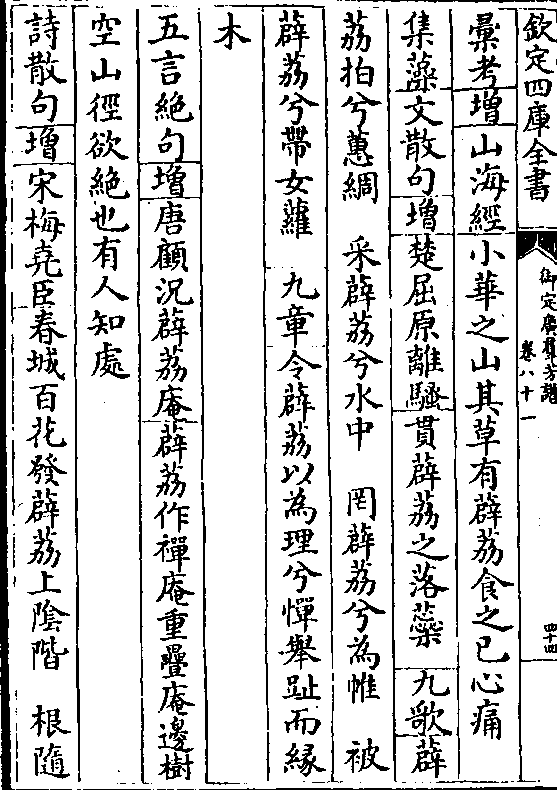 欽定四庫全書
御定廣羣芳譜
卷八十一
四十四
彙考增山海經小華之山其草有薜荔食之已心痛
集藻文散句增楚屈原離騷貫薜荔之落蘂　九歌薜
荔拍兮蕙綢　采薜荔兮水中　罔薜荔兮為帷　被
薜荔兮帶女蘿　九章令薜荔以為理兮憚舉趾而緣
木
五言絶句增唐顧況薜荔庵薜荔作禪庵重疊庵邊樹
空山徑欲絶也有人知處
詩散句增宋梅堯臣春城百花發薜荔上陰階　根隨